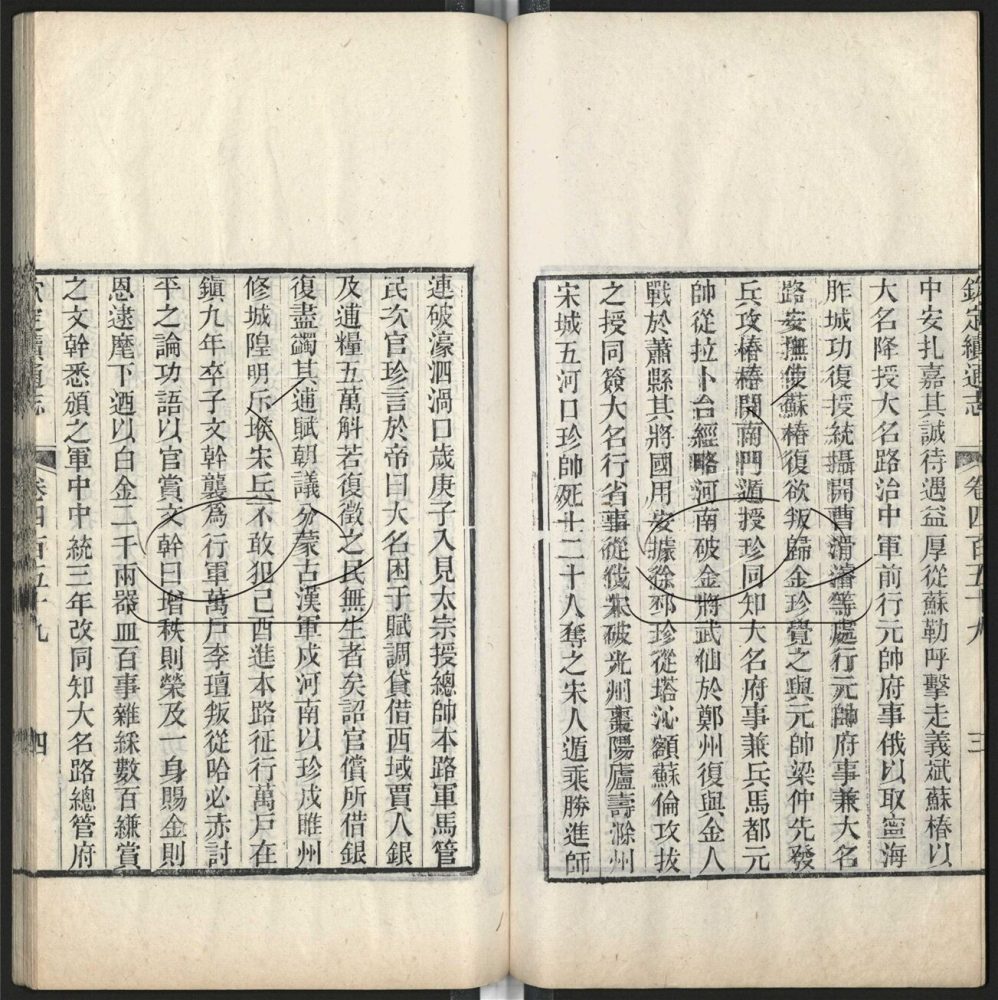 欽定續通志 卷四百五十九 三
中安扎嘉其誠待遇益厚從蘇勒呼擊走義斌蘇椿以
大名降授大名路治中軍前行元帥府事俄以取寧海
胙城功復授統攝開曹滑濬等處行元帥府事兼大名
路安撫使蘇椿復欲叛歸金珍覺之與元帥梁仲先發
兵攻椿椿開南門遁授珍同知大名府事兼兵馬都元
帥從拉卜台經略河南破金將武仙於鄭州復與金人
戰於蕭縣其將國用安據徐邳珍從塔沁額蘇倫攻拔
之授同簽大名行省事從伐宋破光州棗陽廬壽滁州
宋城五河口珍帥死士二十八奪之宋人遁乘勝進師
連破濠泗渦口歲庚子入見太宗授總帥本路軍馬管
民次官珍言於帝曰大名困于賦調貸借西域賈人銀
及逋糧五萬斛若復徵之民無生者矣詔官償所借銀
復盡蠲其逋賦朝議分蒙古漢軍戍河南以珍戍睢州
修城隍明斥堠宋兵不敢犯己酉進本路征行萬戶在
鎮九年卒子文幹襲為行軍萬戶李璮叛從哈必赤討
平之論功語以官賞文幹曰增秩則榮及一身賜金則
恩逮麾下迺以白金二千兩器皿百事雜綵數百縑賞
之文幹悉頒之軍中中統三年改同知大名路總管府
欽定續通志 卷四百五十九 四